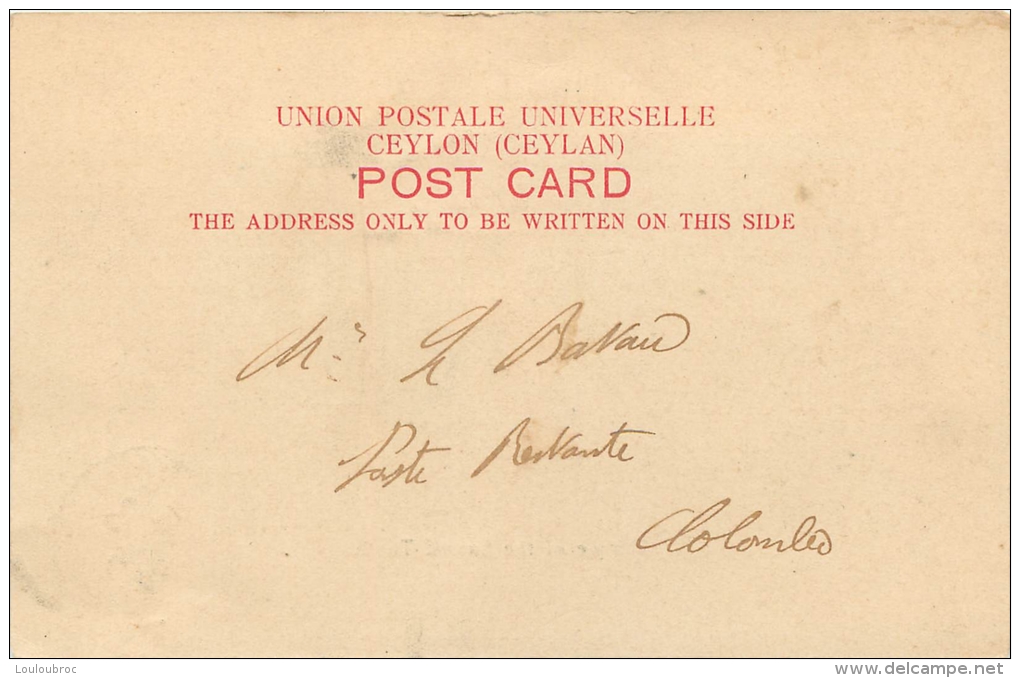 UNION POSTALE UNIVERSELLE
CEYLON (CEYLAN)
POST CARD
THE ADDRESS ONLY TO BE WRITTEN ON THIS SIDE
Mr
Poste Restante
Colombo
Louloubroc
www.delcampe.net